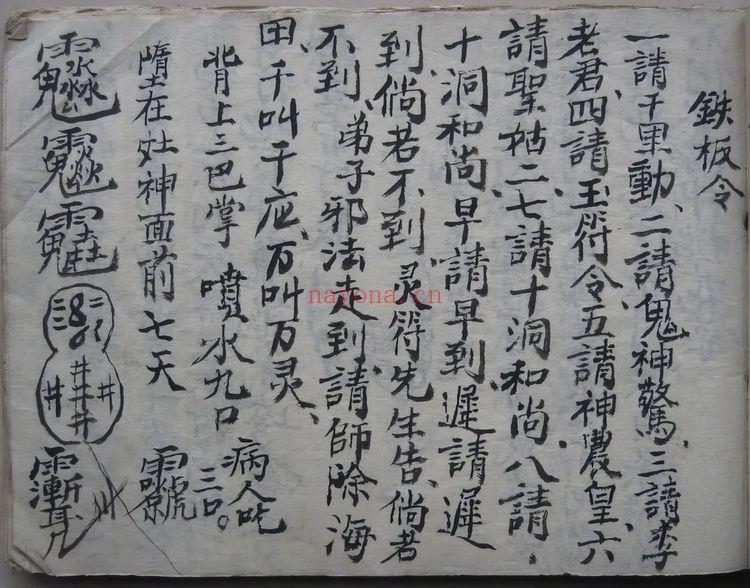 鉄板令
一請千里動、二請鬼神驚、三請李
老君、四請玉符令、五請神農皇、六
請聖姑二、七請十洞和尚、八請、
十洞和尚、早請早到、遲請遲
到、倘若不到、灵符先生告、倘若
不到、弟子邪法走到、請師除海
田、千叫千应、万叫万灵、
背上三巴掌 噴水九口 病人吃三口。
隋土在灶神面前七天
井 井 井 井 井
nayona.cn